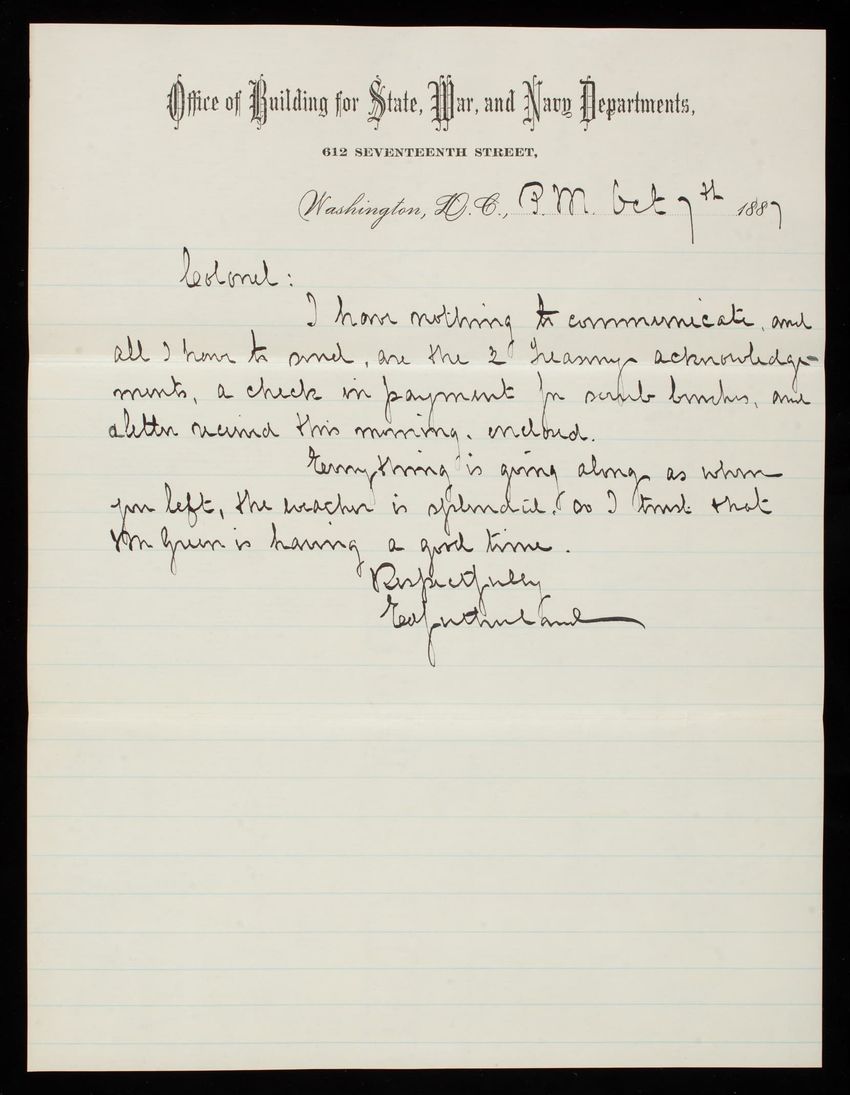 Office of Building for State, War, and Navy Departments,
612 SEVENTEENTH STREET,
Washington, D.C., P.M. Oct 7th 1887
Colonel:
I have nothing to communicate, and
all I have to send, are the 2 Treasury acknowledge-
ments, a check in payment for scrub brushes, and
a letter received this morning, enclosed.
Everything is going along as when
you left, the weather is splendid, so I trust that
Mr Green is having a good time.
Respectfully
Ed Sutherland